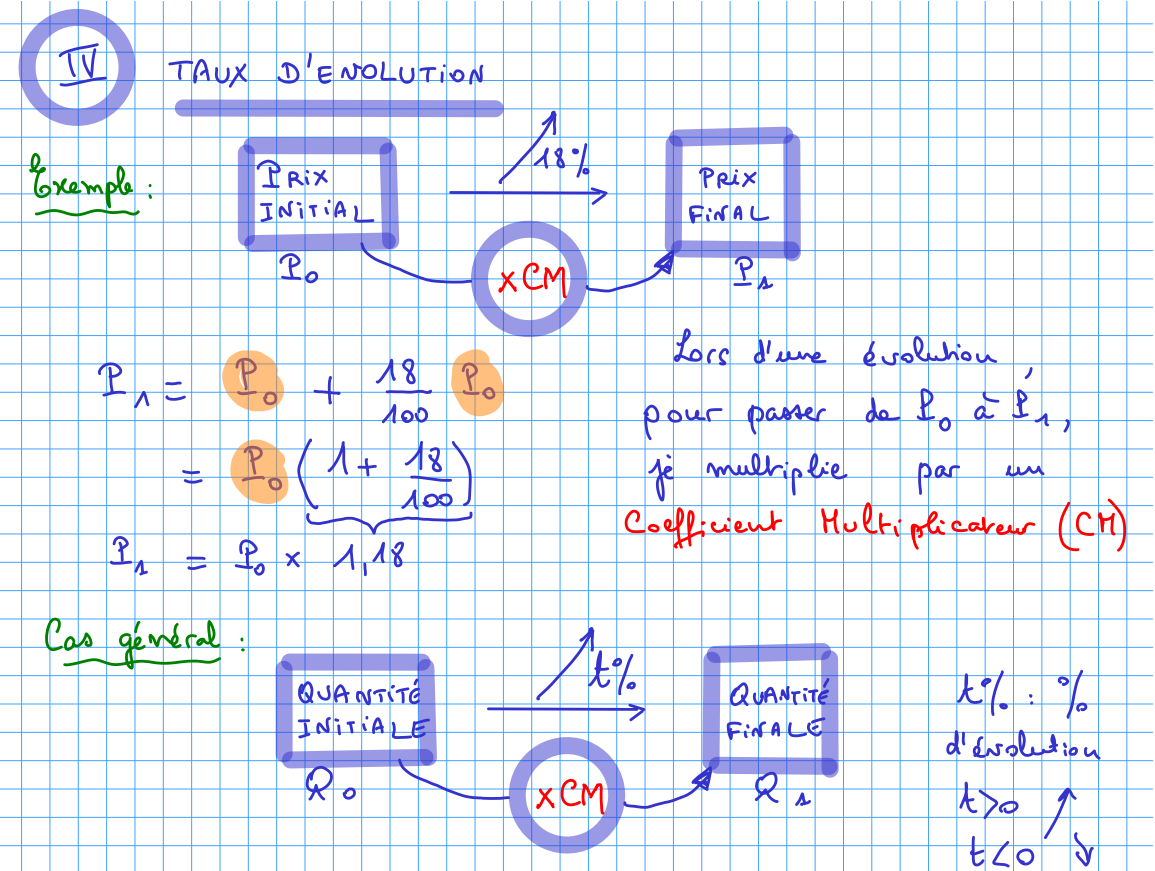 IV TAUX D'EVOLUTION
Exemple :
PRIX
INITIAL
18%
PRIX
FINAL
P₀
xCM
P₁
P₁ = P₀ + 18/100 P₀
= P₀ (1 + 18/100)
P₁ = P₀ × 1,18
Lors d'une évolution,
pour passer de P₀ à P₁,
je multiplie par un
Coefficient Multiplicateur (CM)
Cas général :
QUANTITÉ
INITIALE
t%
QUANTITÉ
FINALE
Q₀
xCM
Q₁
t% : %
d'évolution
t>0 ↗
t<0 ↘